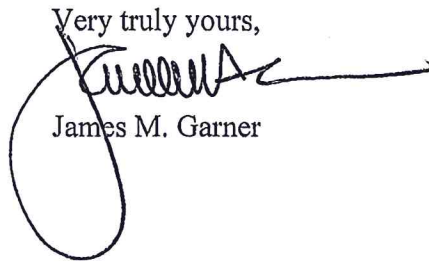 Very truly yours,
James M. Garner